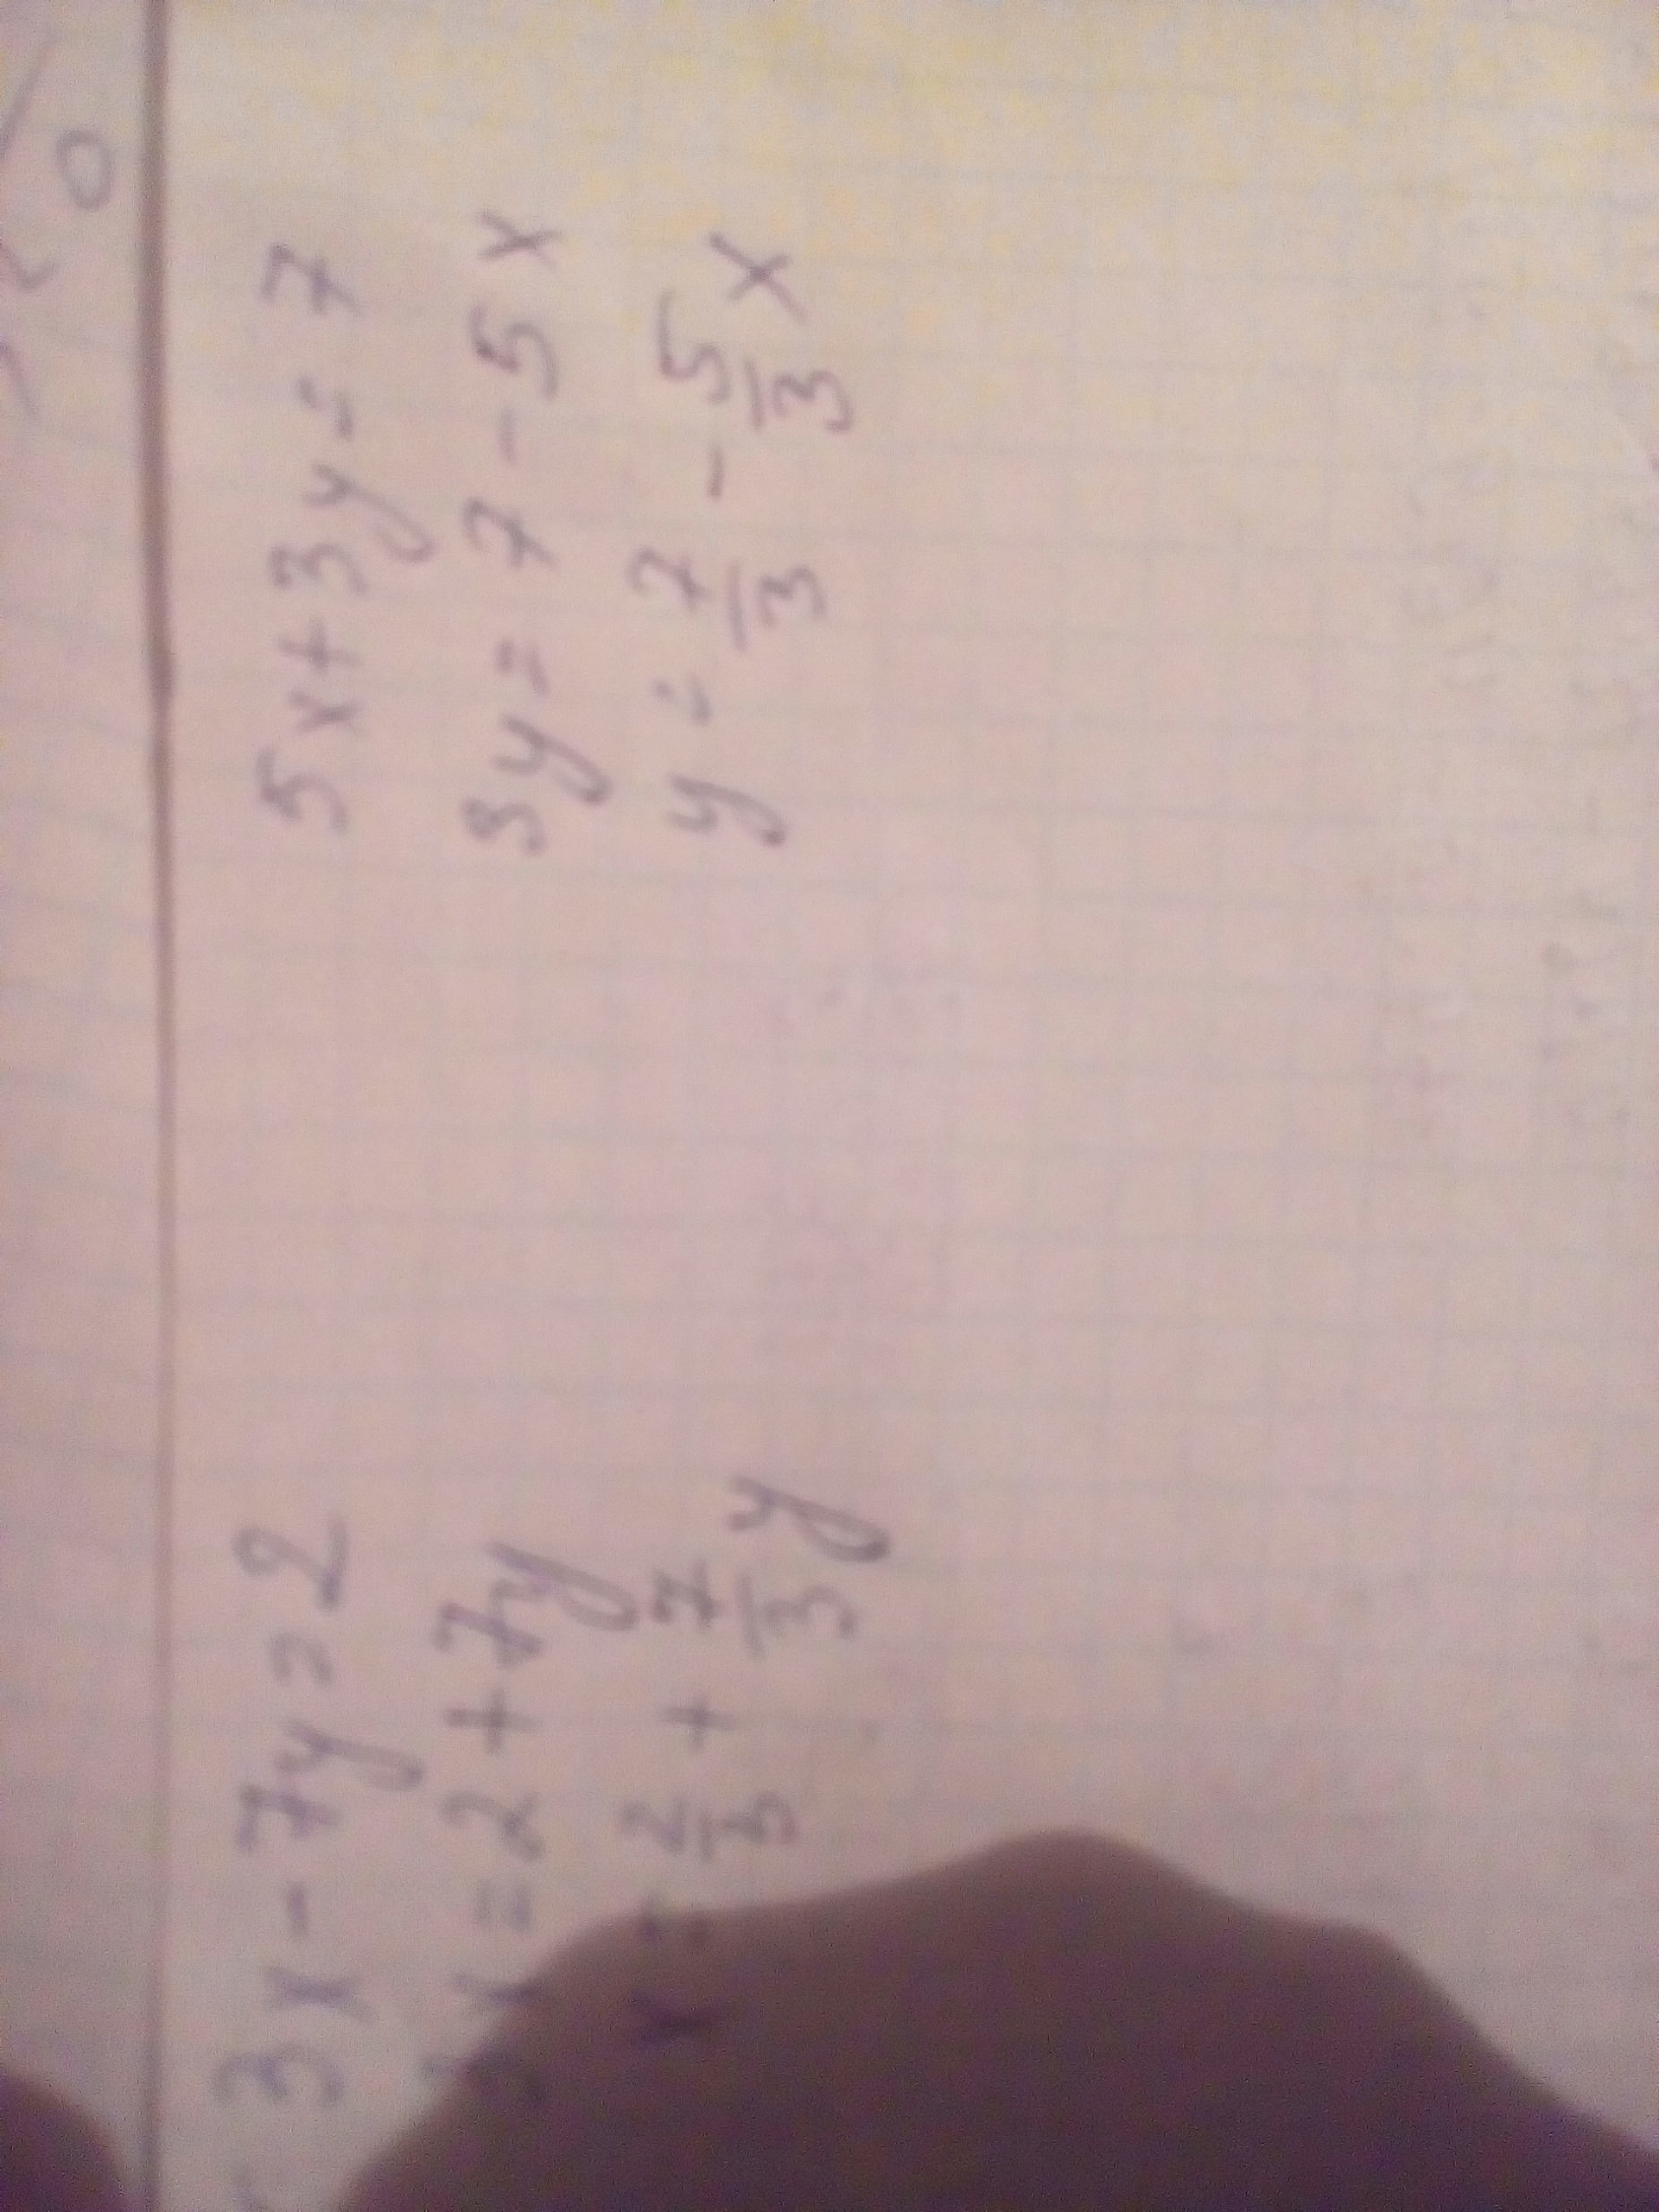 3x - 7y = 2
3x = 2 + 7y
x = 2/3 + 7/3 y
5x + 3y = 7
3y = 7 - 5x
y = 7/3 - 5/3 x